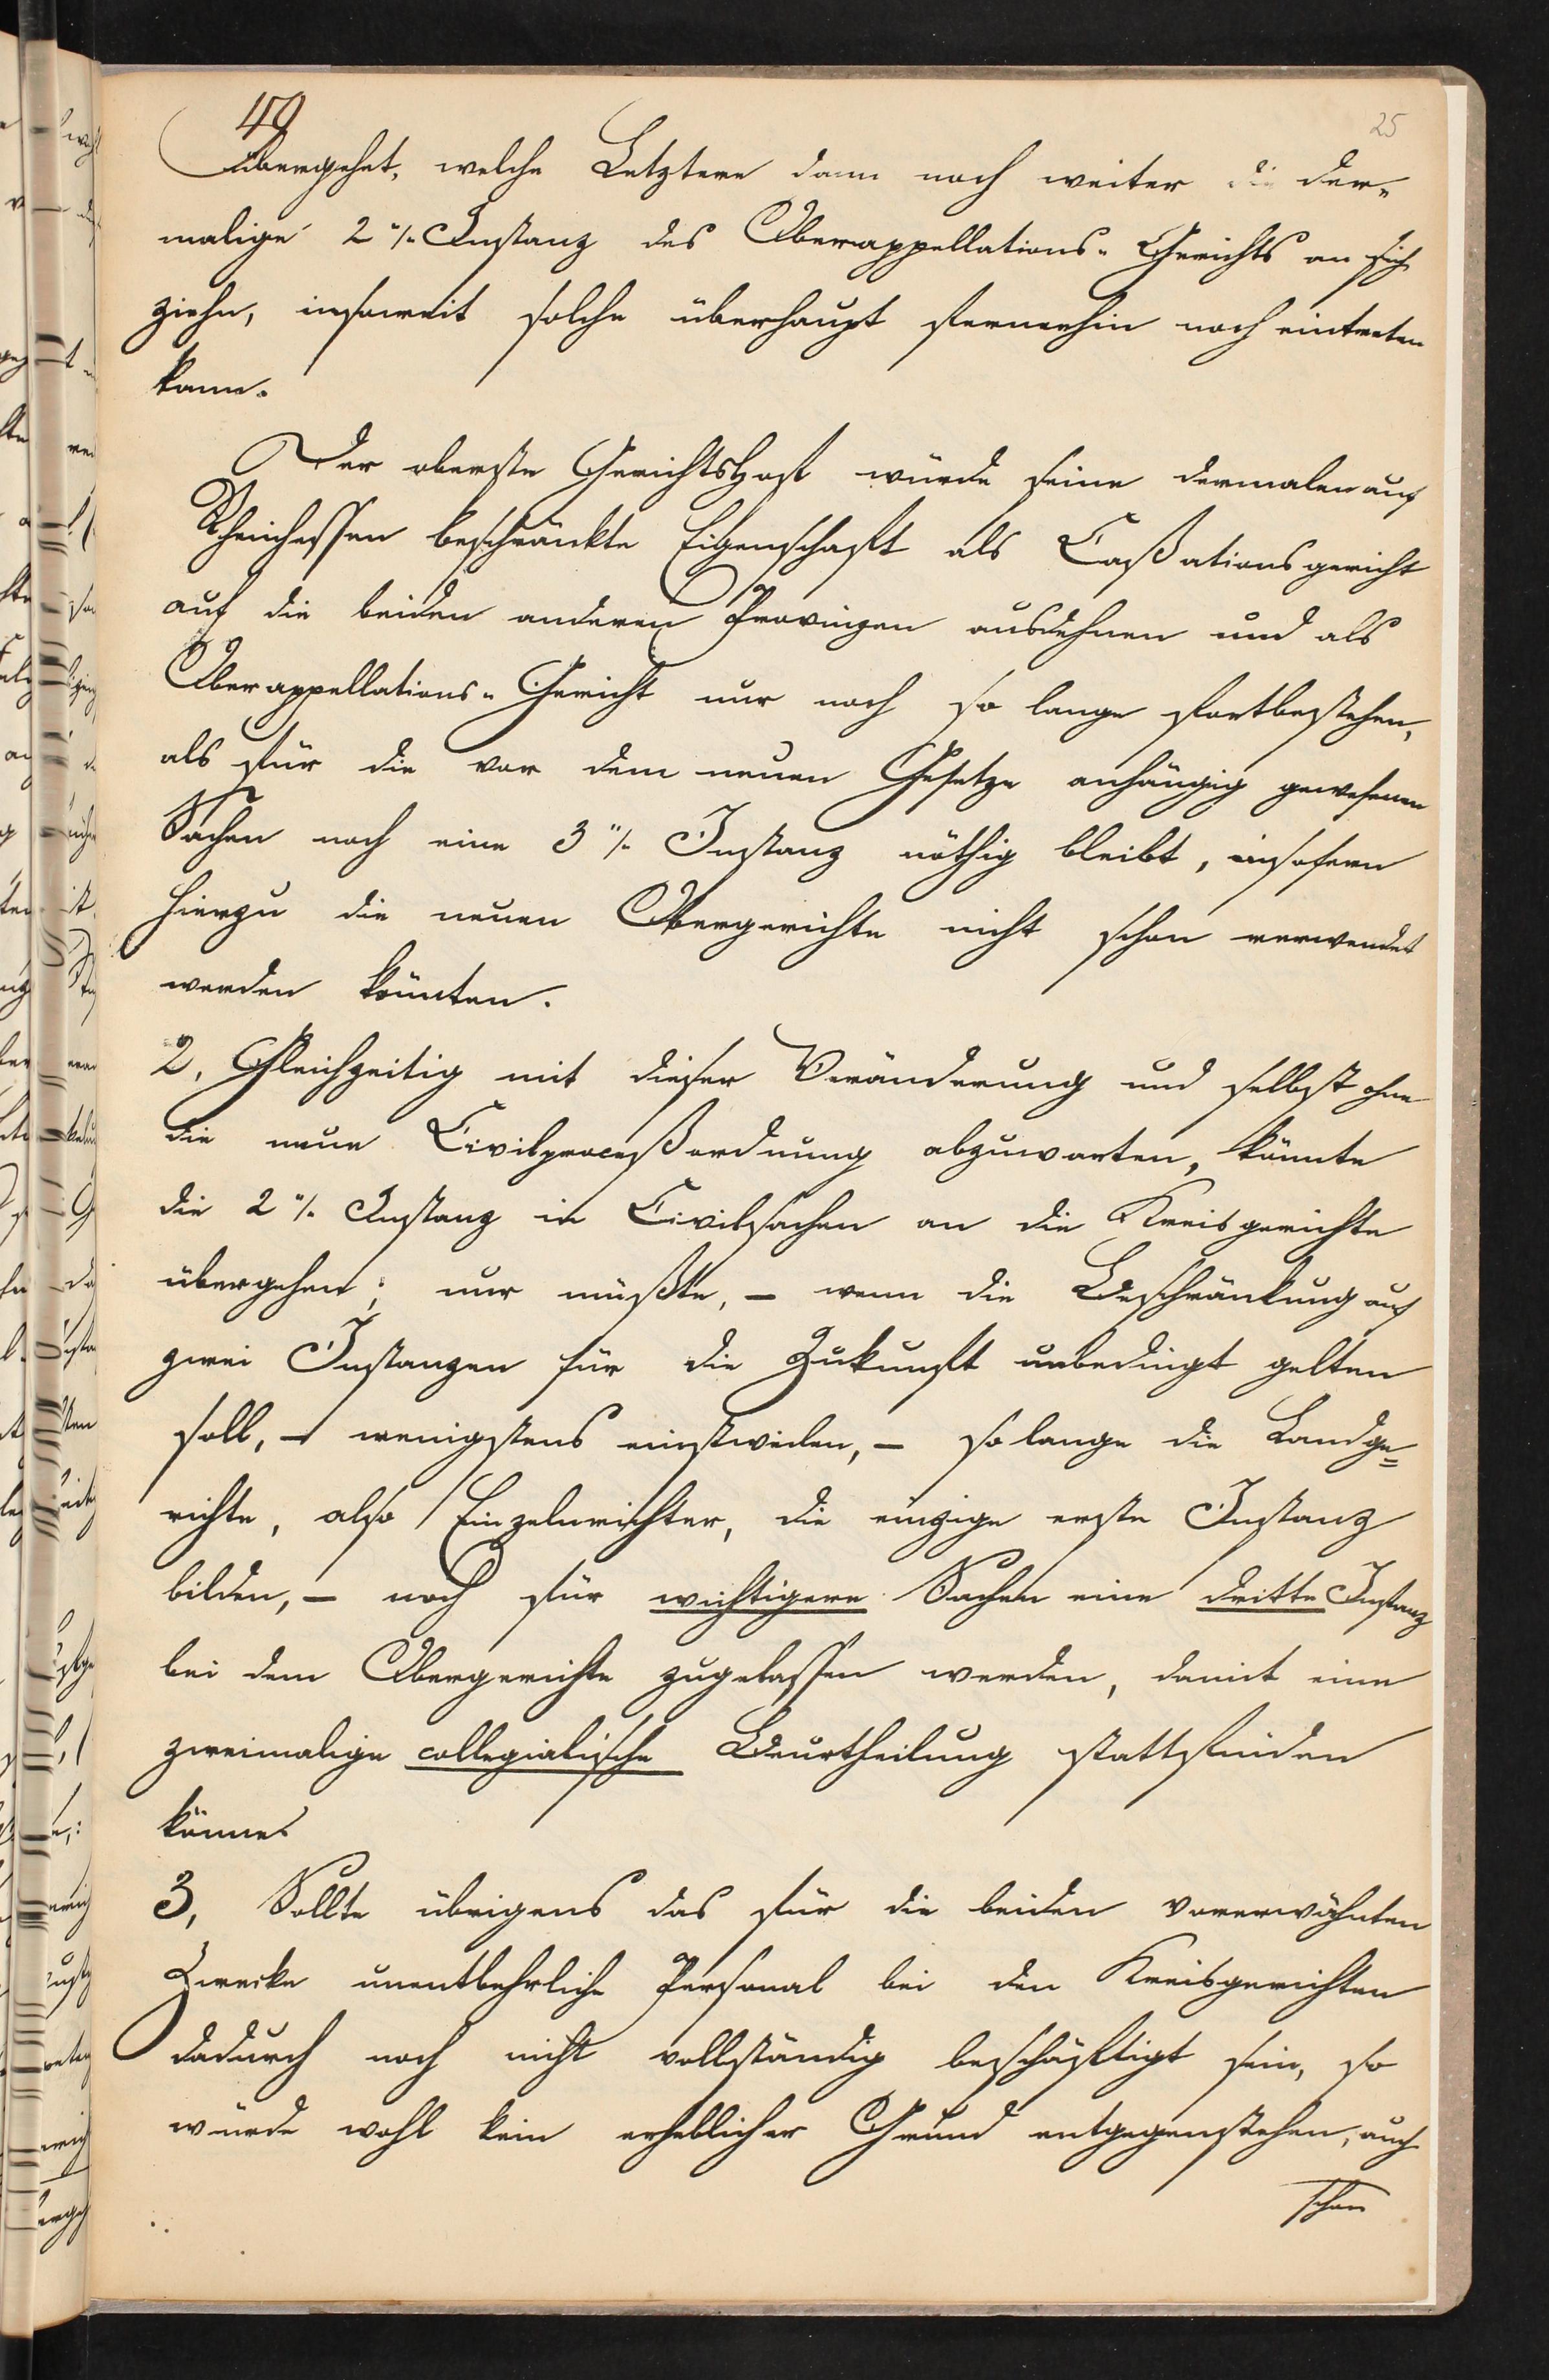 49
25
übergehet, welche Letztere dann noch weiter die der-
malige 2te Instanz des Oberappellations-Gerichts an sich
ziehn, insoweit solche überhaupt fernerhin noch eintreten
kann.
Der oberste Gerichtshof würde seine dermalen auf
Rheinhessen beschränkte Eigenschaft als Caßationsgericht
auf die beiden anderen Provinzen ausdehnen und als
Oberappellations-Gericht nur noch so lange fortbestehen,
als für die vor dem neuen Gesetze anhängig gewesenen
Sachen noch eine 3te Instanz nöthig bleibt, insofern
hierzu die neuen Obergerichte nicht schon verwendet
werden könnten.
2, Gleichzeitig mit dieser Veränderung und selbst ohne
die neue Civilproceßordnung abzuwarten, könnte
die 2te Instanz in Civilsachen an die Kreisgerichte
übergehen; nur müßte, – wenn die Beschränkung auf
zwei Instanzen für die Zukunft unbedingt gelten
soll, – wenigstens einstweilen, – so lange die Landge=
richte, also Einzelnrichter, die einzige erste Instanz
bilden, – noch für wichtigere Sachen eine dritte Instanz
bei dem Obergerichte zugelassen werden, damit eine
zweimalige collegialische Beurtheilung stattfinden
könne.
3, Sollte übrigens das für die beiden vorerwähnten
Zwecke unentbehrliche Personal bei den Kreisgerichten
dadurch noch nicht vollständig beschäftigt sein, so
würde wohl kein erheblicher Grund entgegenstehen, auch
schon